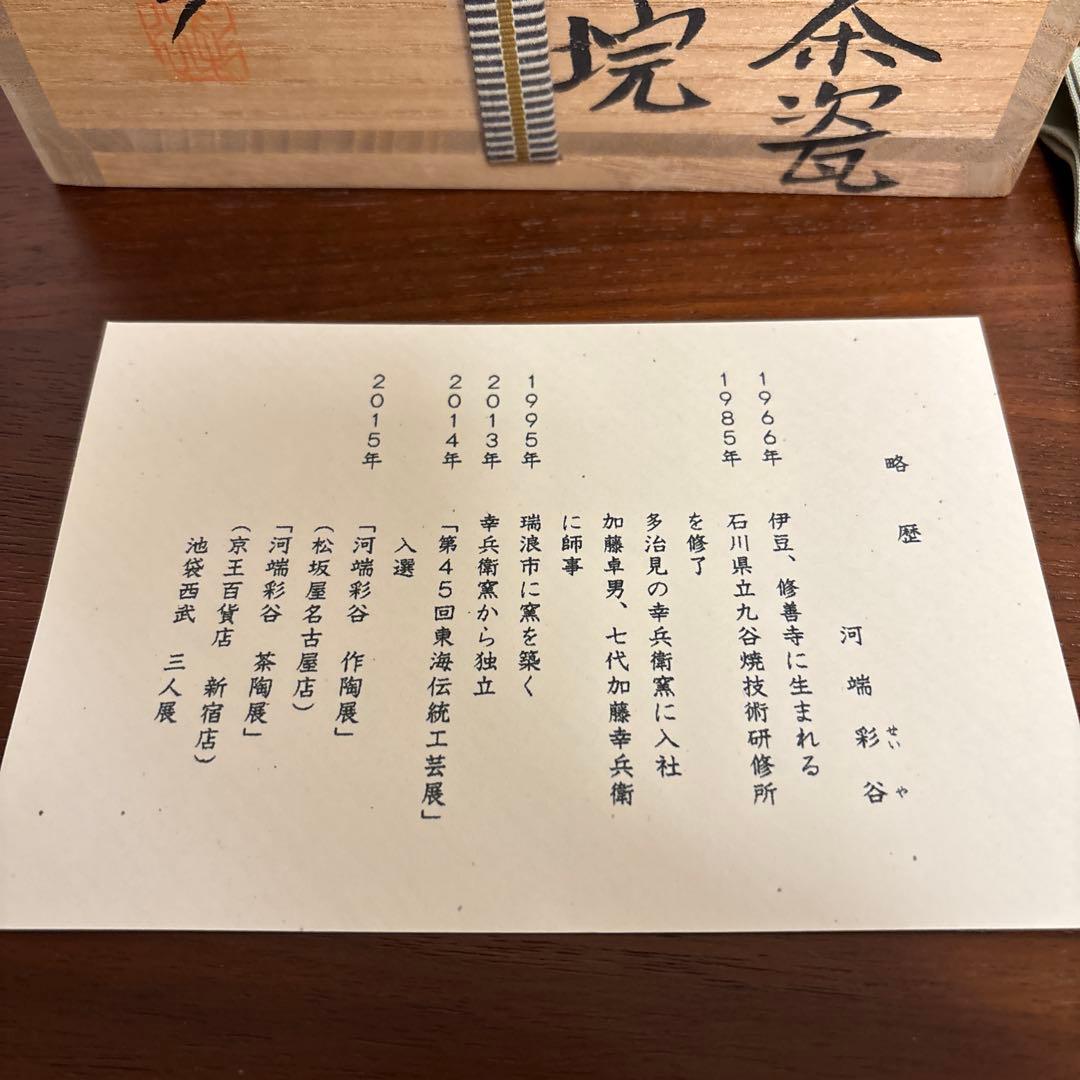 瓷
垸
略歴
河端彩谷
せいや
1966年 伊豆、修善寺に生まれる
1985年 石川県立九谷焼技術研修所
を修了
多治見の幸兵衛窯に入社
加藤卓男、七代加藤幸兵衛
に師事
1995年 瑞浪市に窯を築く
2013年 幸兵衛窯から独立
2014年 「第45回東海伝統工芸展」
入選
2015年 「河端彩谷 作陶展」
(松坂屋名古屋店)
「河端彩谷 茶陶展」
(京王百貨店 新宿店)
池袋西武 三人展